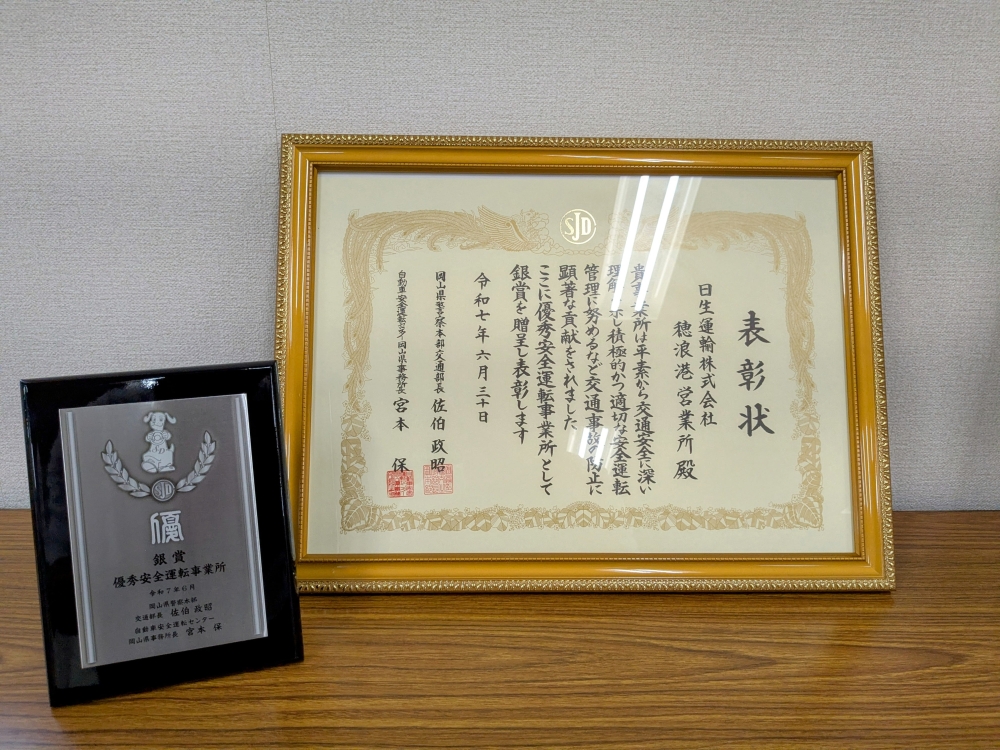 SJD
表彰状
日生運輸株式会社
穂浪港営業所 殿
貴事業所は平素から交通安全に深い
理解を示し積極的かつ適切な安全運転
管理に努めるなど交通事故の防止に
顕著な貢献をされました
ここに優秀安全運転事業所として
銀賞を贈呈し表彰します
令和七年六月三十日
岡山県警察本部交通部長 佐伯政昭
自動車安全運転センター岡山県事務所長 宮本 保
SJD
優
銀賞
優秀安全運転事業所
令和7年6月
岡山県警察本部
交通部長 佐伯 政昭
自動車安全運転センター
岡山県事務所長 宮本 保